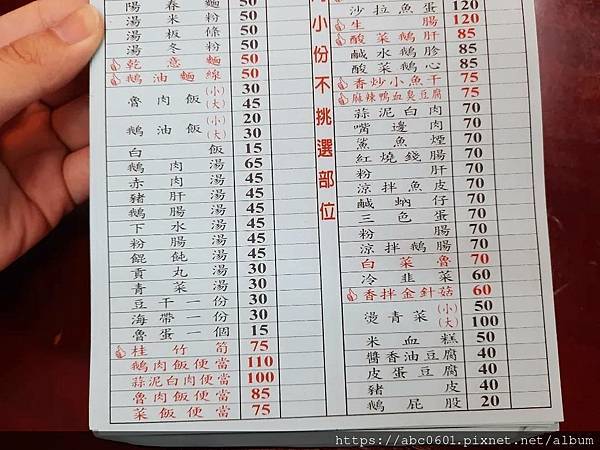 陽春麵 50
湯米粉 50
湯板條 50
湯冬粉 50
乾意麵 50
鵝油麵線 50
魯肉飯(小) 30
(大) 45
鵝油飯(小) 20
(大) 30
白飯 15
鵝肉湯 65
赤肉湯 45
豬肝湯 45
鵝腸湯 45
下水湯 45
粉腸湯 45
餛飩湯 45
貢丸湯 30
青菜湯 30
豆干一份 30
海帶一份 30
魯蛋一個 15
桂竹筍 75
鵝肉飯便當 110
蒜泥白肉便當 100
魯肉飯便當 85
菜飯便當 75
小份不挑選部位
沙拉魚蛋 120
生腸 120
酸菜鵝肝 85
鹹水鵝胗 85
酸菜鵝心 85
香炒小魚干 75
麻辣鴨血臭豆腐 75
蒜泥白肉 70
嘴邊肉 70
鯊魚煙 70
紅燒錢腸 70
粉肝 70
涼拌魚皮 70
鹹蚋仔 70
三色蛋 70
粉腸 70
涼拌鵝腸 70
白菜魯 70
冷韭菜 60
香拌金針菇 60
燙青菜(小) 50
(大) 100
米血糕 50
醬香油豆腐 40
皮蛋豆腐 40
豬皮 40
鵝屁股 20
https://abc0601.pixnet.net/album